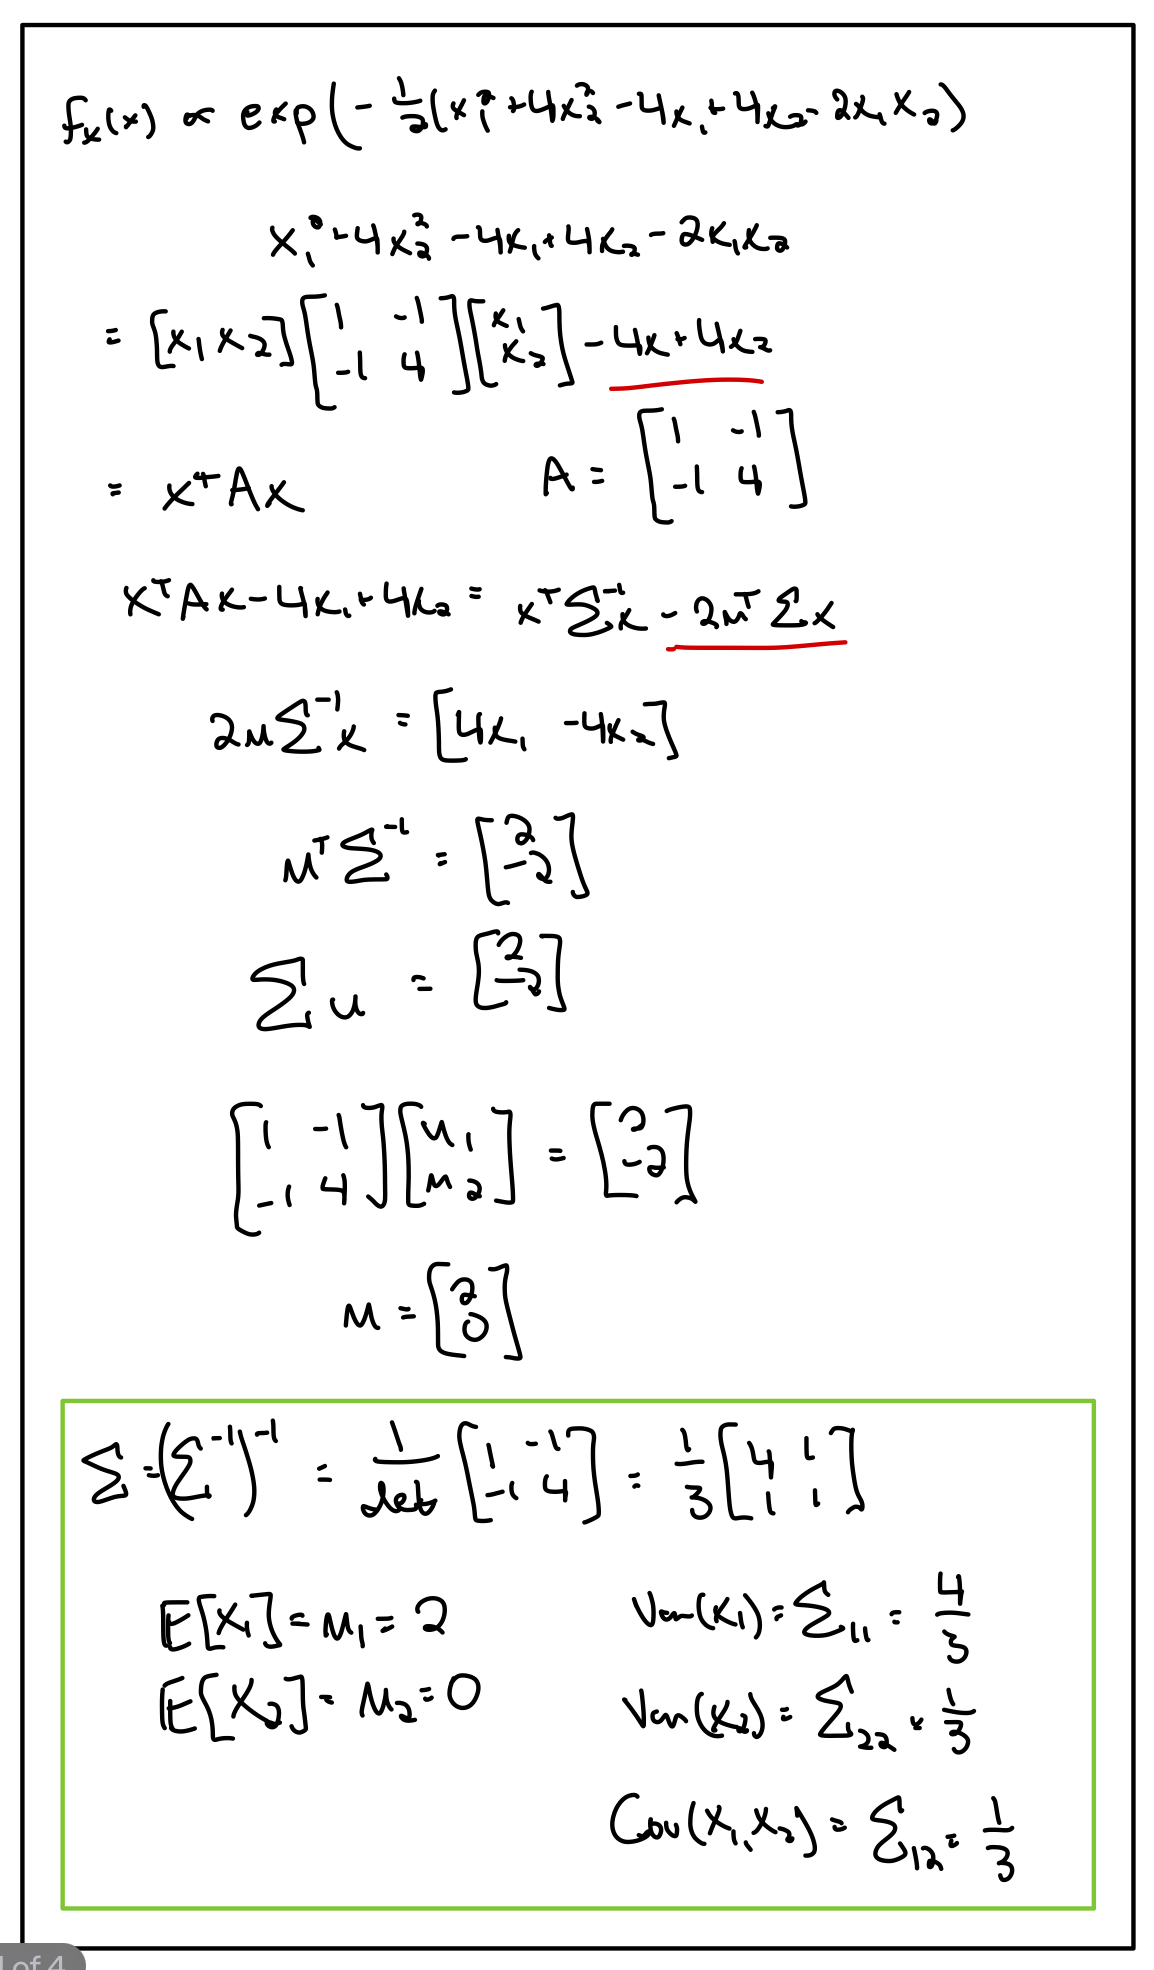 fₓ(x) ∝ exp(- 1/2 (x₁² + 4x₂² - 4x₁ + 4x₂ - 2x₁x₂)
x₁² + 4x₂² - 4x₁ + 4x₂ - 2x₁x₂
= [x₁ x₂] [1 -1; -1 4] [x₁; x₂] - 4x + 4x₂
= xᵀAx A = [1 -1; -1 4]
xᵀAx - 4x₁ + 4x₂ = xᵀΣ⁻¹x - 2μᵀΣx
2μΣ⁻¹x = [4x₁ -4x₂]
μᵀΣ⁻¹ = [2; -2]
Σμ = [2; -2]
[1 -1; -1 4] [μ₁; μ₂] = [2; -2]
μ = [2; 0]
Σ = (Σ⁻¹)⁻¹ = 1/det [1 -1; -1 4] = 1/3 [4 1; 1 1]
E[X₁] = μ₁ = 2 Var(X₁) = Σ₁₁ = 4/3
E[X₂] = μ₂ = 0 Var(X₂) = Σ₂₂ = 1/3
Cov(X₁,X₂) = Σ₁₂ = 1/3
of 4